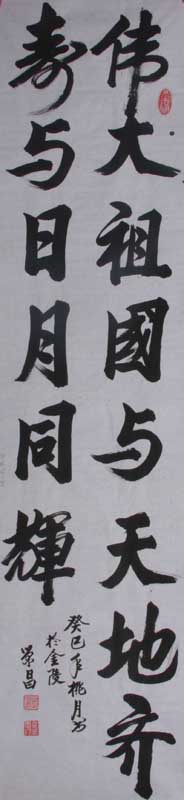 伟大祖國与天地齐
寿与日月同輝
癸巳年桃月书
於金陵
景昌